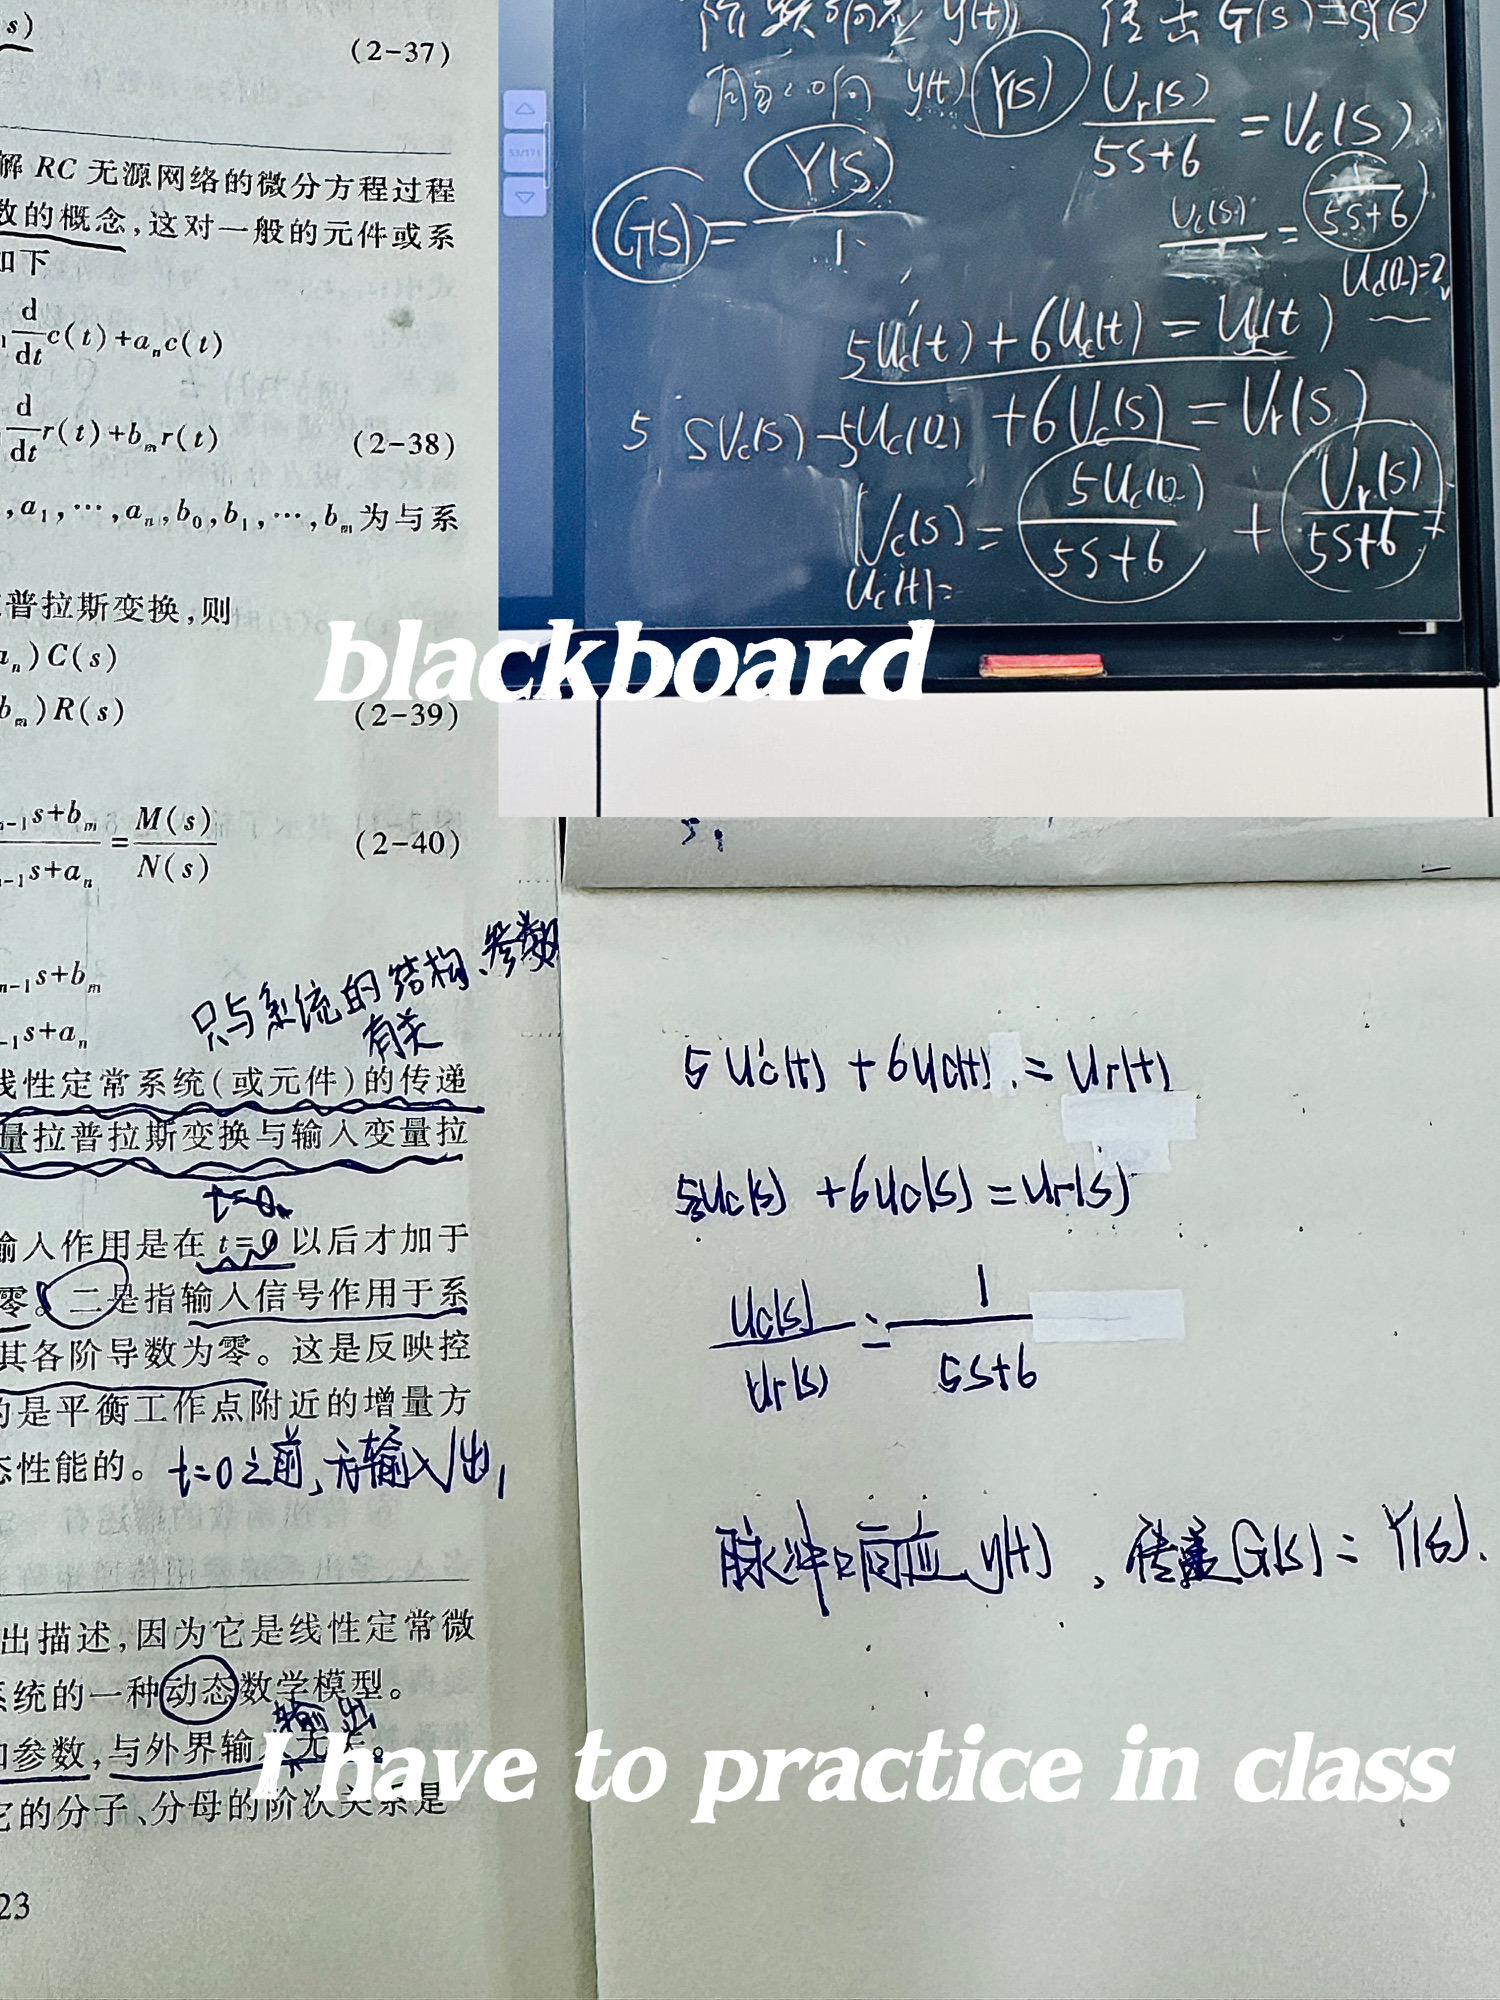 s)
(2-37)
解 RC 无源网络的微分方程过程
数的概念,这对一般的元件或系
如下
d/dt c(t)+aₙc(t)
d/dt r(t)+bₘr(t) (2-38)
,a₁,⋯,aₙ,b₀,b₁,⋯,bₘ为与系
普拉斯变换,则
aₙ)C(s)
bₘ)R(s) (2-39)
₋₁s+bₘ / ₋₁s+aₙ = M(s)/N(s) (2-40)
ₘ₋₁s+bₘ
₋₁s+aₙ
只与系统的结构、参数
有关
线性定常系统(或元件)的传递
量拉普拉斯变换与输入变量拉
输入作用是在 t=0 以后才加于
零。二是指输入信号作用于系
其各阶导数为零。这是反映控
的是平衡工作点附近的增量方
态性能的。 t=0之前,无输入/出,
出描述,因为它是线性定常微
系统的一种动态数学模型。
输出
和参数,与外界输入无关。
它的分子、分母的阶次关系是
23
阶跃响应 y(t) 传去 G(s)=sY(s)
y(t) Y(s) Ur(s)/5s+6 = Uc(s)
G(s) = Y(s)/1
Uc(s) = 1/5s+6
Uc(0-)=2v
5U'c(t)+6Uc(t) = Ur(t)
5 sUc(s)-5Uc(0-)+6Uc(s) = Ur(s)
Uc(s) = 5Uc(0-)/5s+6 + Ur(s)/5s+6 =
Uc(t)=
blackboard
5U'c(t)+6Uc(t) = Ur(t)
5Uc(s)+6Uc(s)=Ur(s)
Uc(s)/Ur(s) = 1/5s+6
脉冲响应 y(t), 传递G(s)=Y(s).
I have to practice in class